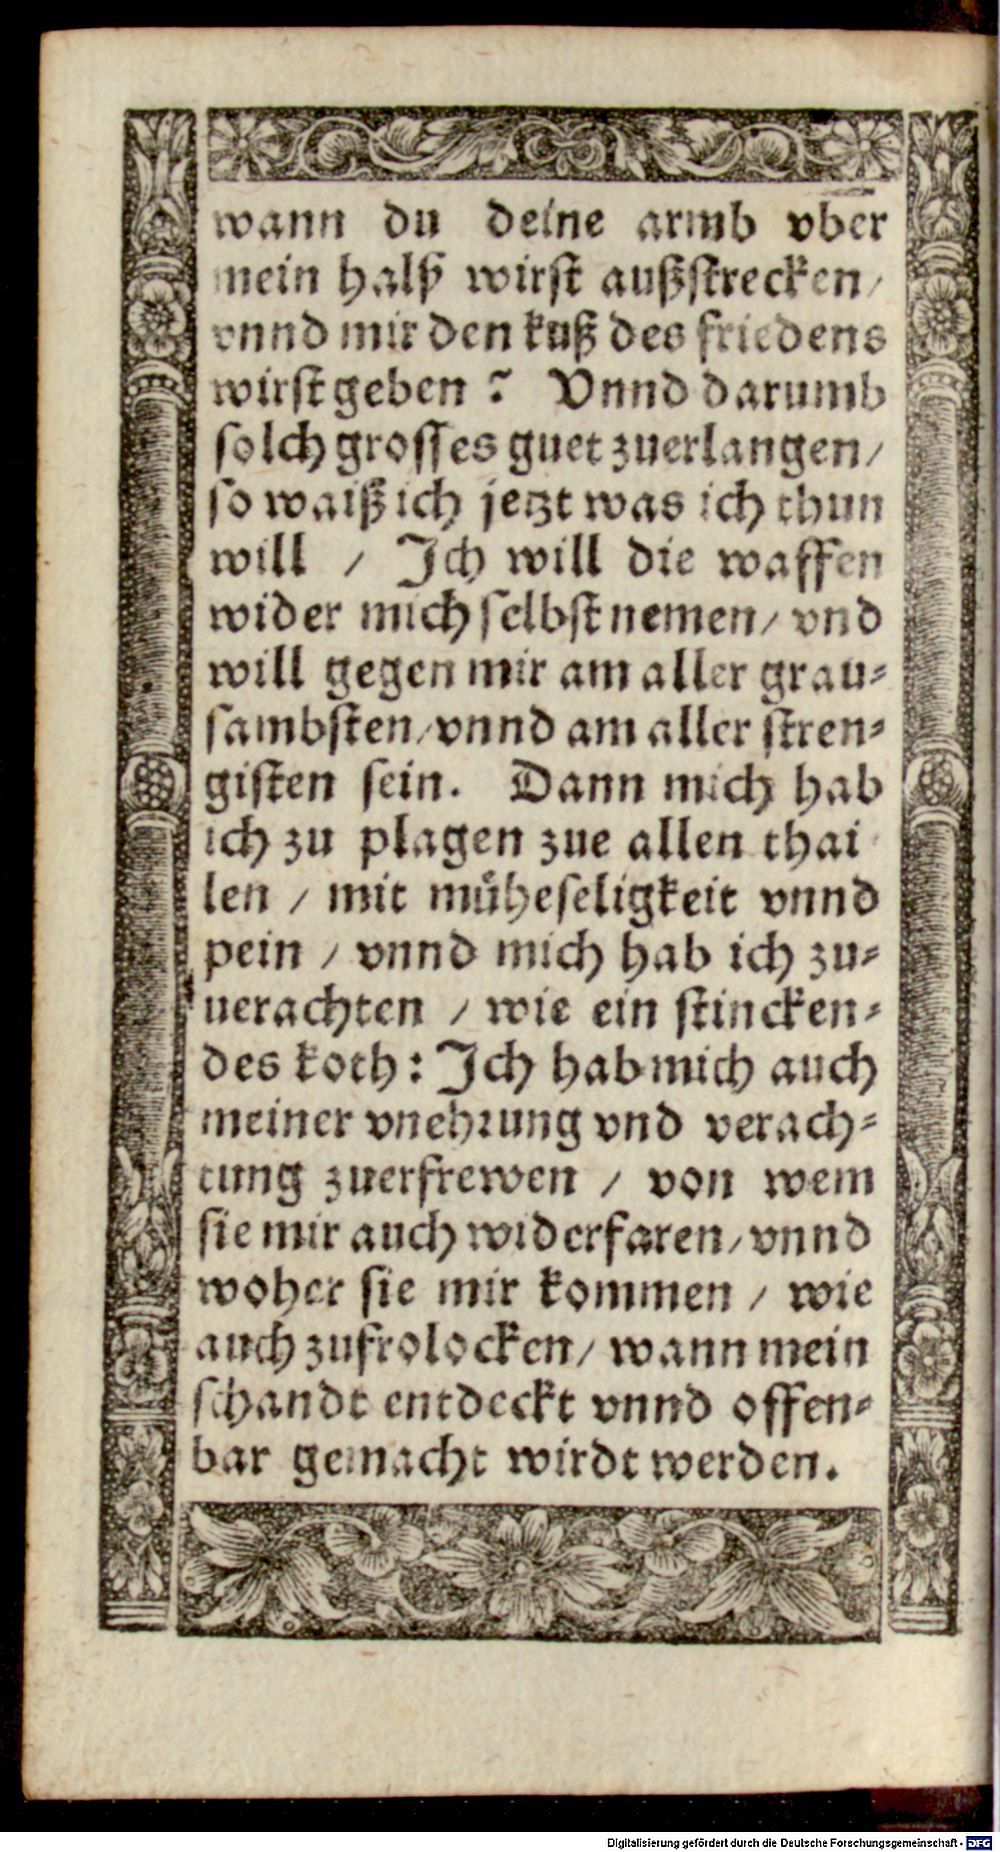 wann du deine armb vber
mein halß wirst außstrecken /
vnnd mir den kuß des friedens
wirst geben? Vnnd darumb
solch grosses guet zuerlangen /
so waiß ich jetzt was ich thun
will / Ich will die waffen
wider mich selbst nemen / vnd
will gegen mir am aller grau-
sambsten / vnnd am aller stren-
gisten sein. Dann mich hab
ich zu plagen zue allen thai
len / mit müheseligkeit vnnd
pein / vnnd mich hab ich zu-
uerachten / wie ein stincken-
des koth: Ich hab mich auch
meiner vnehrung vnd verach-
tung zuerfrewen / von wem
sie mir auch widerfaren / vnnd
woher sie mir kommen / wie
auch zufrolocken / wann mein
schandt entdeckt vnnd offen-
bar gemacht wirdt werden.
Digitalisierung gefördert durch die Deutsche Forschungsgemeinschaft - DFG